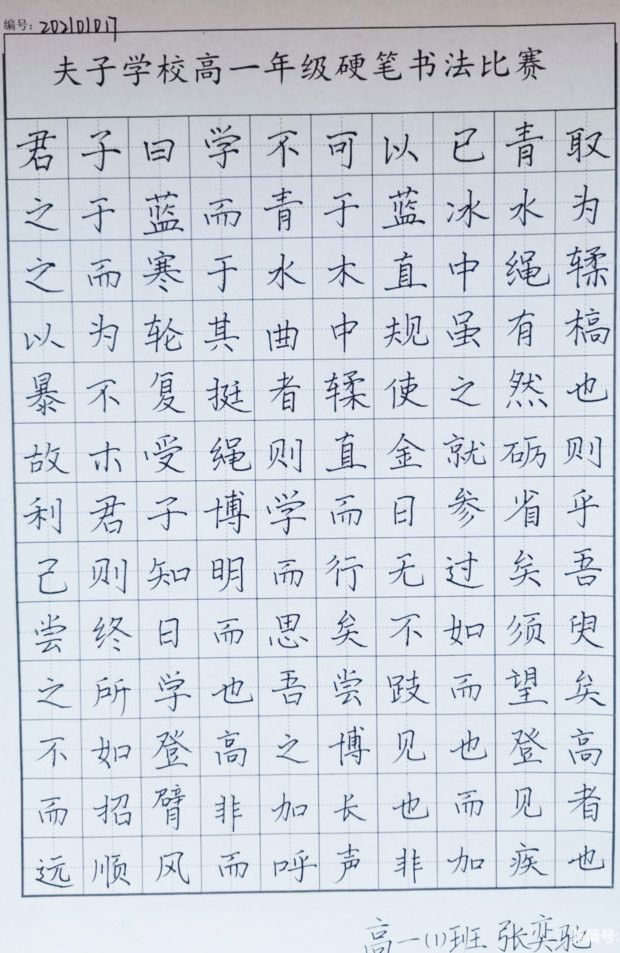 编号：202101017
夫子学校高一年级硬笔书法比赛
君子曰学不可以已青取
之于蓝而青于蓝冰水为
之而寒于水木直中绳輮
以为轮其曲中规虽有槁
暴不复挺者輮使之然也
故木受绳则直金就砺则
利君子博学而日参省乎
己则知明而行无过矣吾
尝终日而思矣不如须臾
之所学也吾尝跂而望矣
不如登高之博见也登高
而招臂非加长也而见者
远顺风而呼声非加疾也
高一(1)班 张奕驰